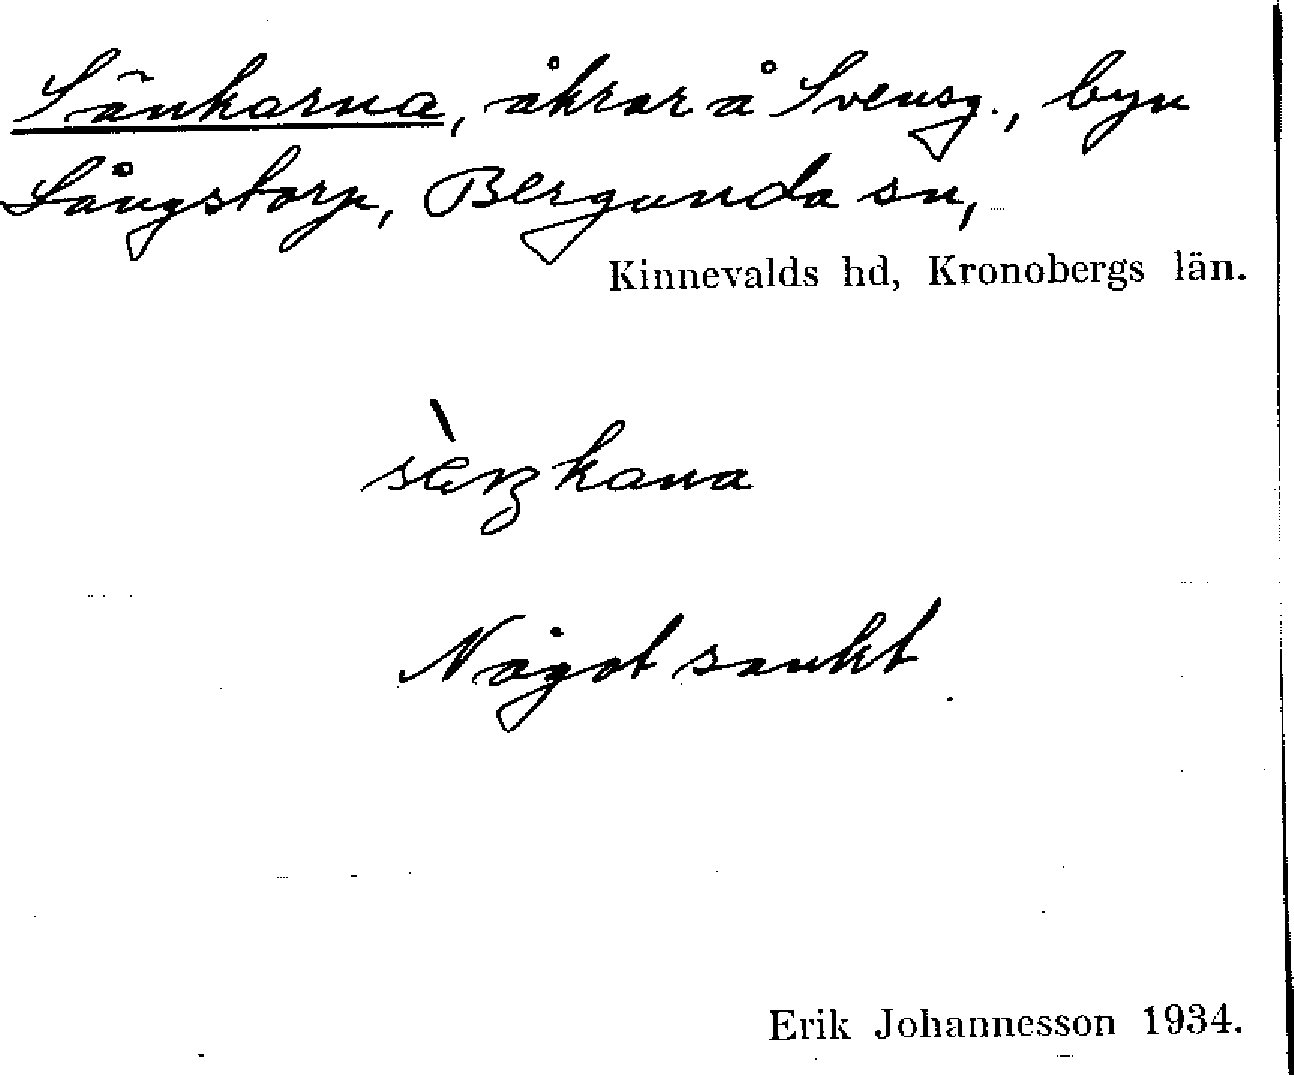 Sänkarna, åkrar å Svensg., byn
Långstorp, Bergunda sn,
Kinnevalds hd, Kronobergs län.
sàŋkana
Något sankt
Erik Johannesson 1934.